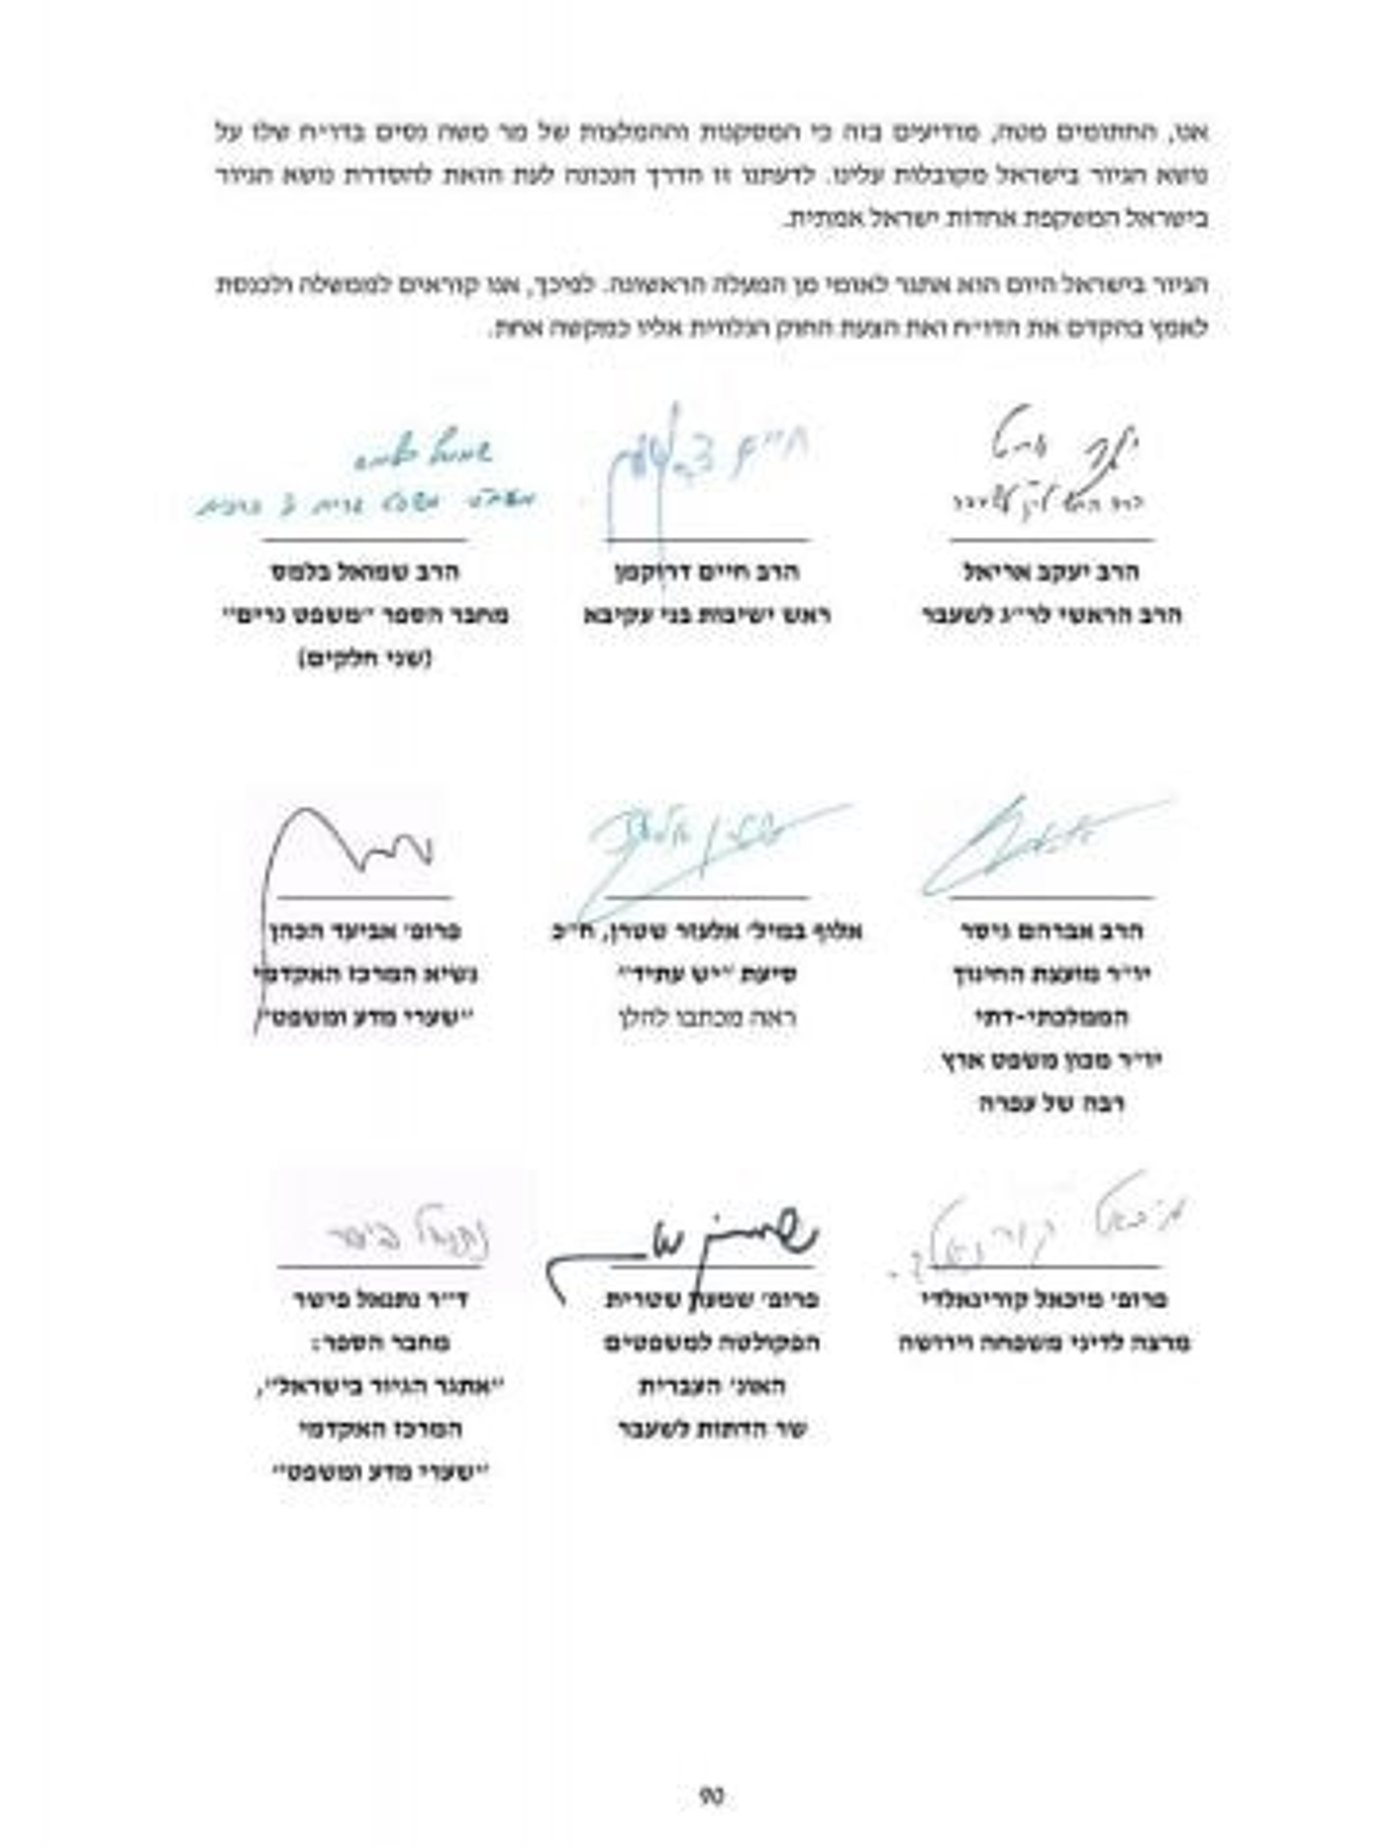 אנו, החתומים מטה, מודיעים בזה כי המסקנות וההמלצות של מר משה נסים בדו״ח שלו על
נושא הגיור בישראל מקובלות עלינו. לדעתנו זו הדרך הנכונה לעת הזאת להסדרת נושא הגיור
בישראל המשקפת אחדות ישראל אמתית.
הגיור בישראל היום הוא אתגר לאומי מן המעלה הראשונה. לפיכך, אנו קוראים לממשלה ולכנסת
לאמץ בהקדם את הדו״ח ואת הצעת החוק הנלווית אליו כמקשה אחת.
הרב יעקב אריאל
הרב הראשי לר״ג לשעבר
הרב חיים דרוקמן
ראש ישיבות בני עקיבא
שמואל בלמס
הרב שמואל בלמס
מחבר הספר ״משפט גרים״
(שני חלקים)
הרב אברהם גיסר
יו״ר מועצת החינוך
הממלכתי-דתי
יו״ר מכון משפט ארץ
רבה של עפרה
אלוף במיל׳ אלעזר שטרן, ח״כ
סיעת ״יש עתיד״
ראה מכתבו להלן
פרופ׳ אביעד הכהן
נשיא המרכז האקדמי
״שערי מדע ומשפט״
מיכאל קורינאלדי
פרופ׳ מיכאל קורינאלדי
מרצה לדיני משפחה וירושה
פרופ׳ שמעון שטרית
הפקולטה למשפטים
האונ׳ העברית
שר הדתות לשעבר
נתנאל פישר
ד״ר נתנאל פישר
מחבר הספר:
״אתגר הגיור בישראל״,
המרכז האקדמי
״שערי מדע ומשפט״
90